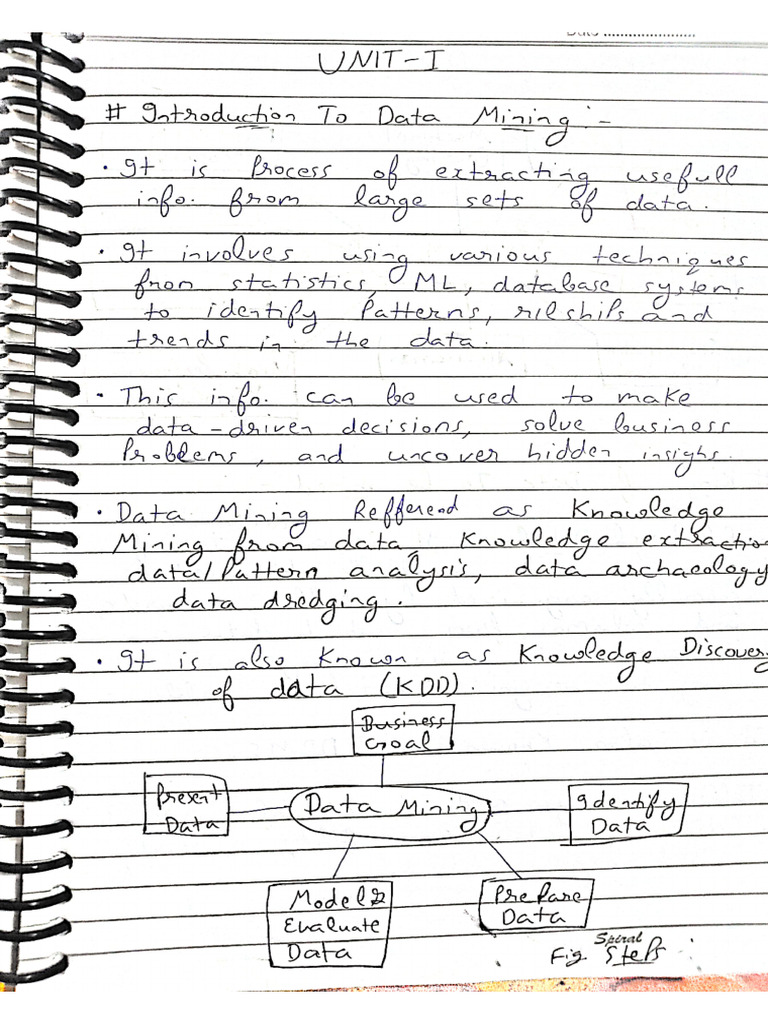 Date ........................
UNIT-I
# Introduction To Data Mining :-
• It is Process of extracting usefull
info. from large sets of data.
• It involves using various techniques
from statistics, ML, database systems
to identify Patterns, rilships and
trends in the data.
• This info. can be used to make
data-driven decisions, solve business
Problems, and uncover hidden insighs.
• Data Mining Reffered as Knowledge
Mining from data, Knowledge extraction
data/Pattern analysis, data archaeology
data dredging.
• It is also known as Knowledge Discovery
of data (KDD).
Business
Goal
Present
Data
Data Mining
Identify
Data
Model &
Evaluate
Data
Prepare
Data
Fig. Steps
Spiral